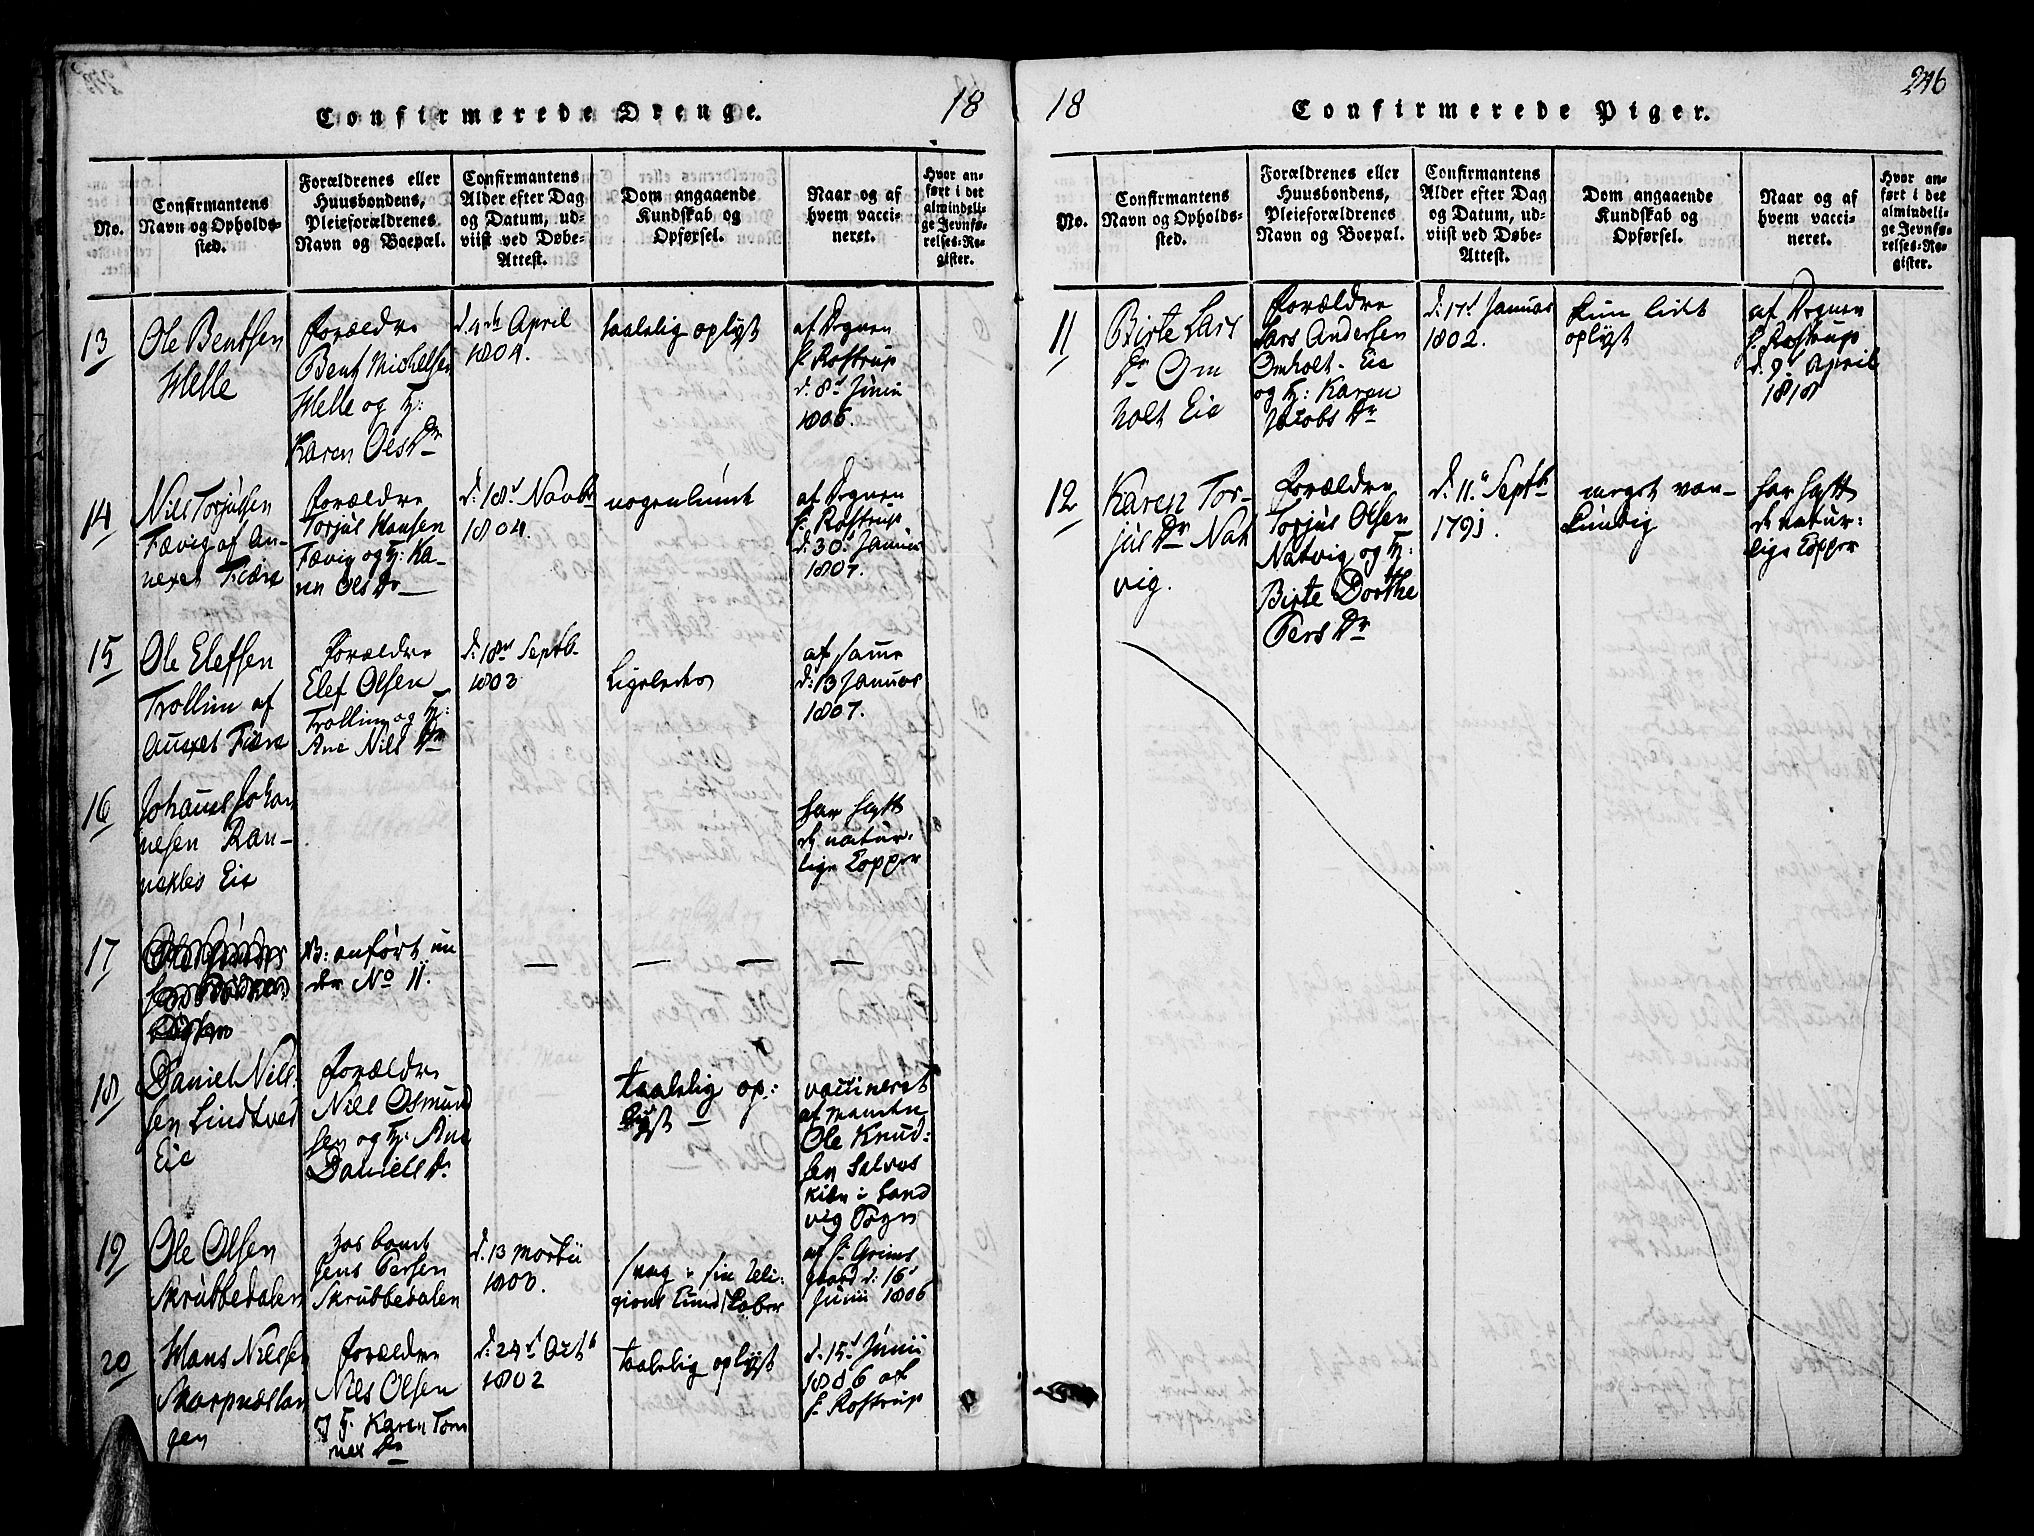 Confirmerede Drenge.
18
No.
Confirmantens
Navn og Opholds-
sted.
Forældrenes eller
Huusbondens,
Pleieforældrenes
Navn og Boepæl.
Confirmantens
Alder efter Dag
og Datum, ud-
viist ved Døbe-
Attest.
Dom angaaende
Kundskab og
Opførsel.
Naar og af
hvem vacci-
neret.
Hvor an-
ført i det
almindeli-
ge Jevnfø-
relses-Re-
gister.
13
Ole Bentsen
Helle
Forældre
Bent Michelsen
Helle og H:
Karen Olsdr
d. 4de April
1804.
taalelig oplyst
af Degnen
H. Rostrup
d. 8d Junii
1806.
14
Nils Torjusen
Fævig af An-
nexet Fiære
Forældre
Torjus Hansen
Fævig og H: Ka-
ren Ols Dr
d: 18d Novbr
1804.
nogenlunde
af Degnen
H. Rostrup
d. 30d Januar
1807.
15
Ole Elefsen
Trollim af
Anexet Fiære
Forældre
Elef Olsen
Trollim og H:
Ane Nils Dr
d: 18d Septb
1803
Ligeledes
af samme
d: 13 Januar
1807.
16
Johanes Johan
nesen Ran-
nekles Eie
har haft
de natur-
lige Kopper
17
NB: anført un
der No 11.
— — — —
18
Daniel Nils-
sen Lindtved
Eie
Forældre
Nils Osmund
sen og H: Ane
Daniels Dr.
taalelig op:
lyst
vaccineret
af
Ole Knud-
sen Salves
Kiær i Land
vig Sogn
19
Ole Olsen
Skrubbedalen
Jens Persen
Skrubbedalen
d. 13 Martii
1803.
svag i sin Reli-
gions Kundskaber
af H. Grims
gaard d: 16d
Junii 1806
20
Hans Nielsen
Skarpnæslan
gen
Forældre
Niels Olsen
H: Karen Tom
nes Dr
d: 24d Octb
1802
taalelig oplyst
d. 15d Junii
1806 af
H. Rostrup
18
Confirmerede Piger.
246
No.
Confirmantens
Navn og Opholds-
sted.
Forældrenes eller
Huusbondens,
Pleieforældrenes
Navn og Boepæl.
Confirmantens
Alder efter Dag
og Datum, ud-
viist ved Døbe-
Attest.
Dom angaaende
Kundskab og
Opførsel.
Naar og af
hvem vacci-
neret.
Hvor an-
ført i det
almindeli-
ge Jevnfø-
relses-Re-
gister.
11
Birte Lars
Dr Om
holt Eie
Forældre
Lars Andersen
Omholt- Eie
og H: Karen
Jacobs Dr
d: 17d Januar
1802.
kun lidt
oplyst
af Degnen
H. Rostrup
d. 9d April
1818
12
Karen Tor-
jus Dr Nat
vig.
Forældre
Torjus Olsen
Natvig og H:
Birte Dorthe
Pers Dr
d. 11. Septb
1791.
meget van-
kundig
har haft
de natur-
lige Kopper